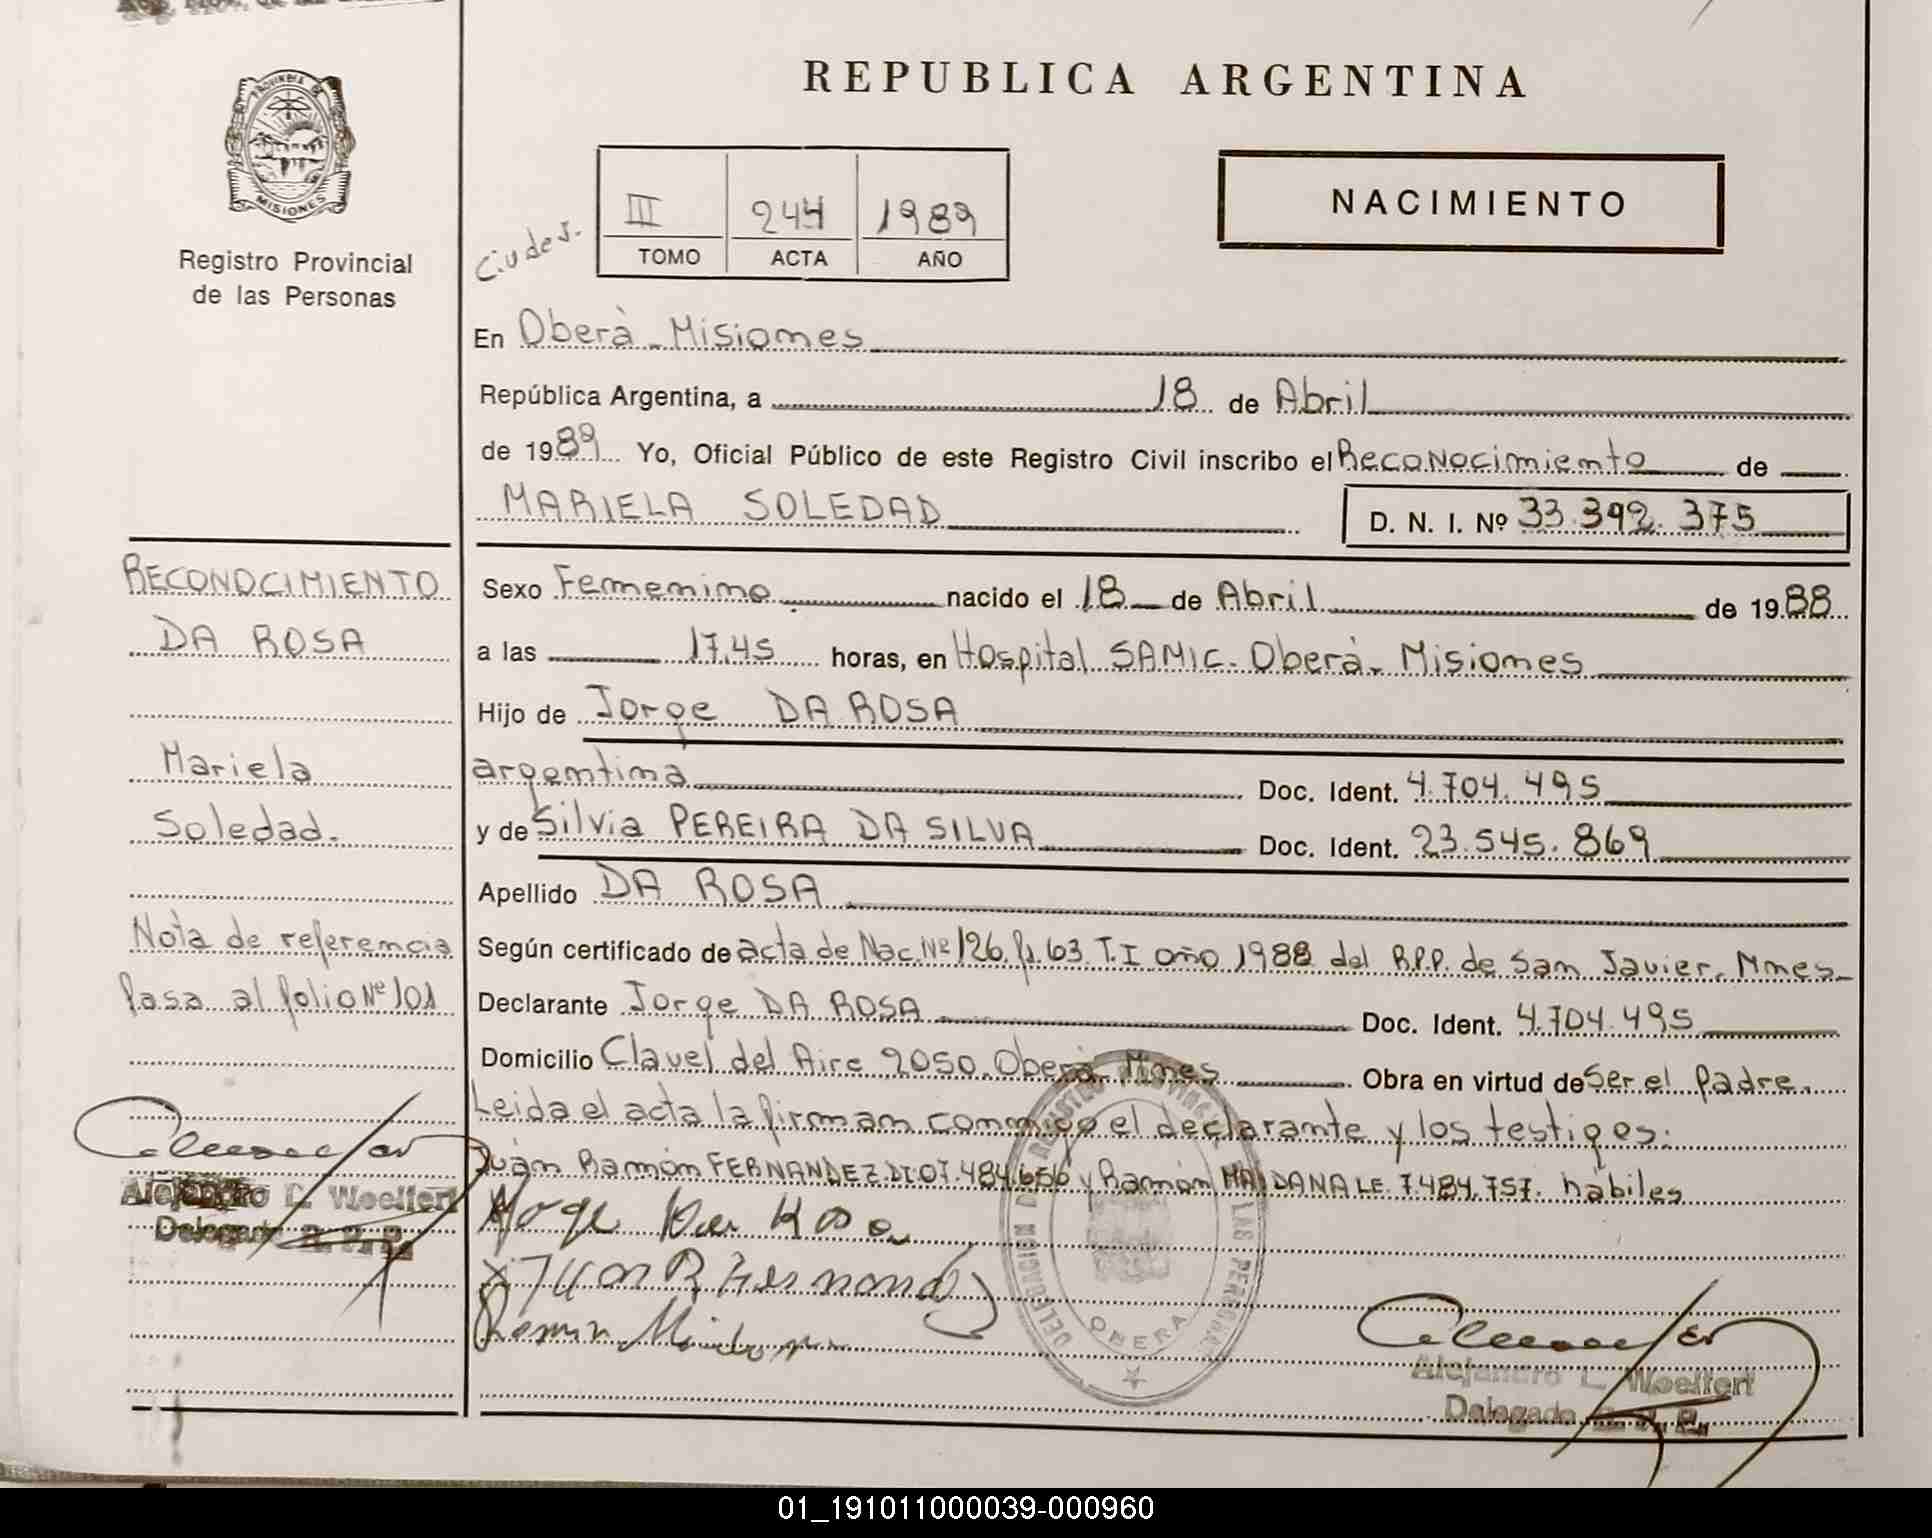 REPUBLICA ARGENTINA
PROVINCIA DE
MISIONES
Registro Provincial
de las Personas
NACIMIENTO
III 244 1989
TOMO ACTA AÑO
En Oberà - Misiones
República Argentina, a 18 de Abril
de 1989 Yo, Oficial Público de este Registro Civil inscribo el Reconocimiento de
MARIELA SOLEDAD D. N. I. Nº 33.392.375
RECONOCIMIENTO
DA ROSA
Mariela
Soledad.
Nota de referencia
Pasa al folio Nº 101
Alejandro L. Woelfert
Delegado R. P. P.
Sexo Femenino nacido el 18 de Abril de 1988
a las 17,45 horas, en Hospital SAMIC. Oberà. Misiones
Hijo de Jorge DA ROSA
argentina Doc. Ident. 4.704.495
y de Silvia PEREIRA DA SILVA Doc. Ident. 23.545.869
Apellido DA ROSA
Según certificado de acta de Nac. Nº 126. fº. 63. T. I año 1988 del R.P.P. de San Javier. Mnes
Declarante Jorge DA ROSA Doc. Ident. 4.704.495
Domicilio Clavel del Aire 2050. Oberà Mnes Obra en virtud de Ser el Padre.
Leida el acta la firman conmigo el declarante y los testigos:
Juàn Ramòn FERNANDEZ. DI. 07.484.656 y Ramòn MAIDANA LE. 7.484.757. hàbiles
Jorge Da Rosa
Juan R Fernandez
Ramon Maidana
DELEGACION DE REGISTRO PROVINCIAL DE LAS PERSONAS
OBERA
Alejandro L. Woelfert
Delegado R. P. P.
01_191011000039-000960